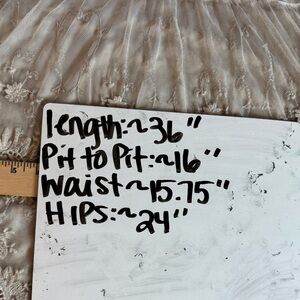 length:~36"
Pit to Pit:~16"
Waist~15.75"
HIPS:~24"
15